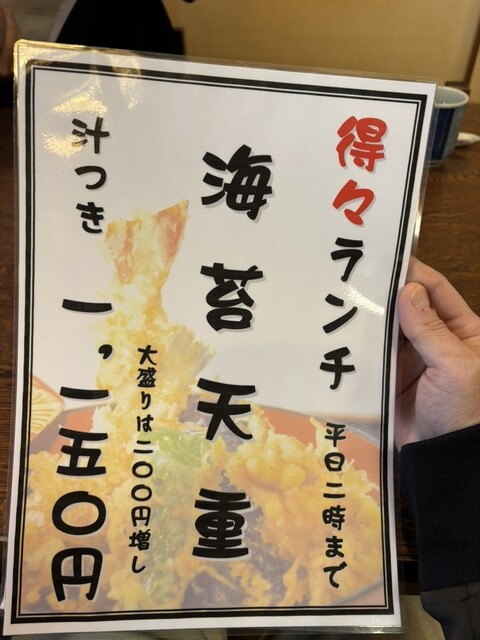 得々ランチ 平日二時まで
海苔天重
大盛りは二〇〇円増し
汁つき 一,一五〇円